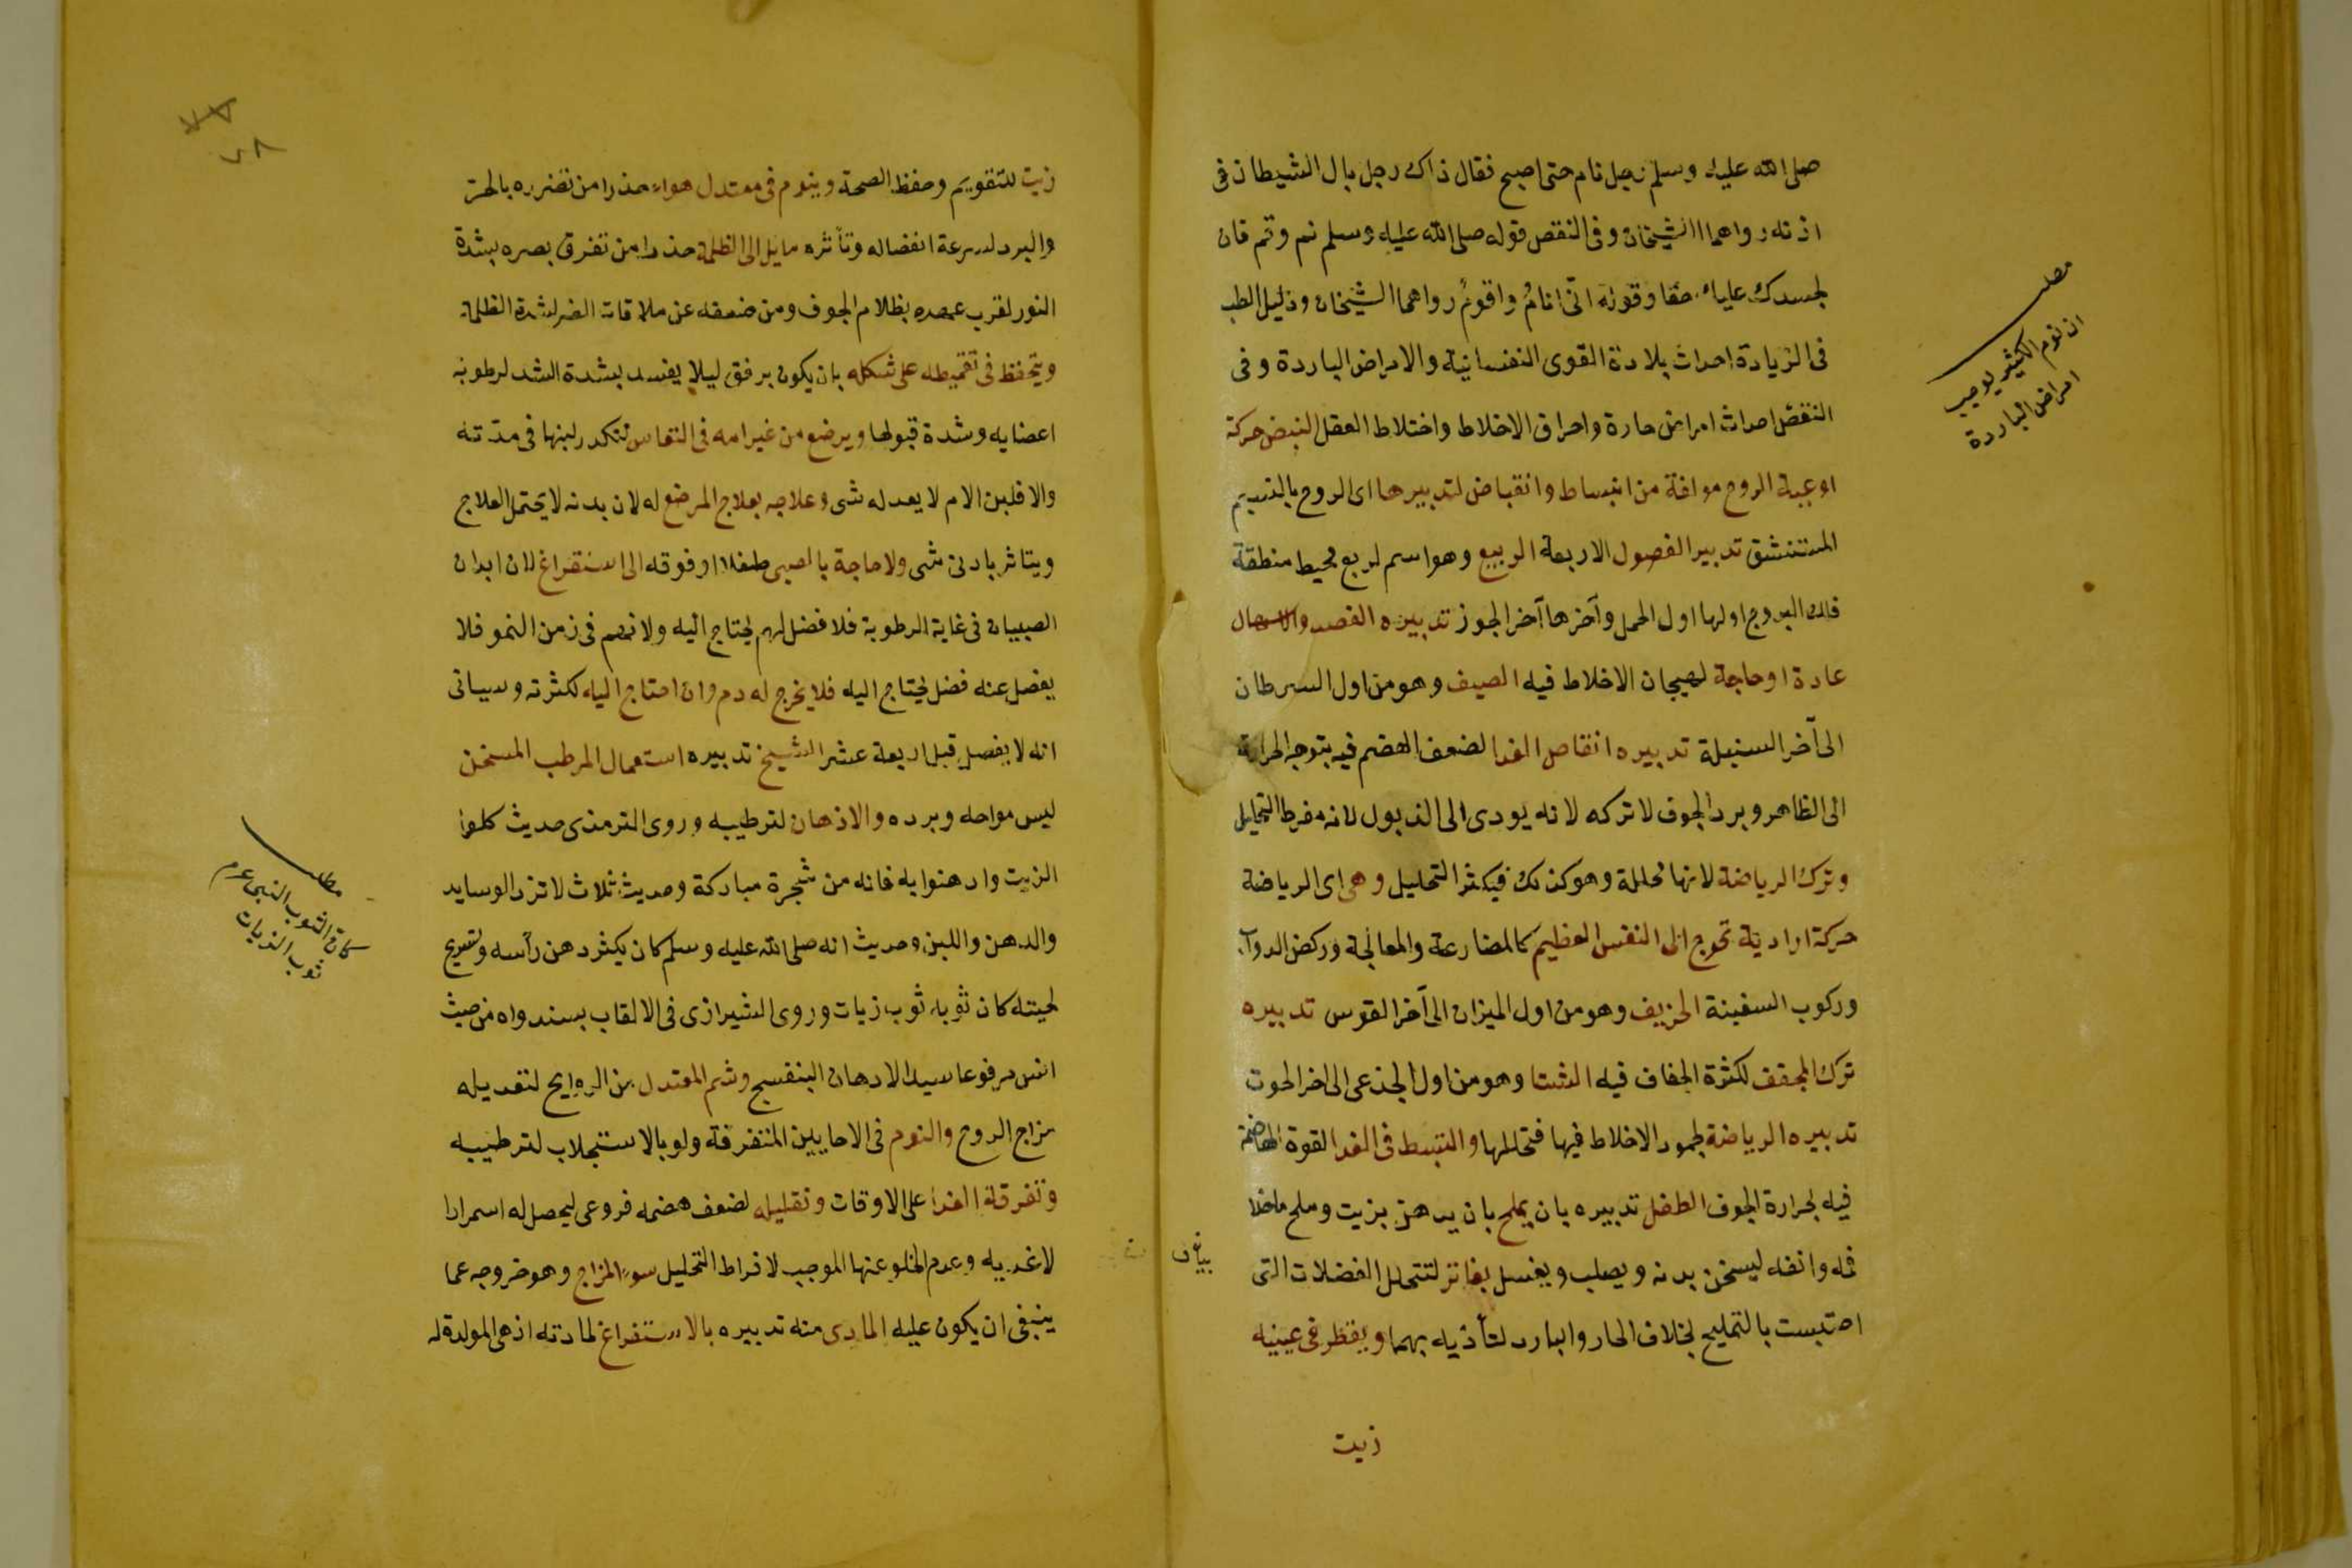 صلى الله عليه وسلم رجل نام حتى اصبح فقال ذاك رجل بال الشيطان فى
اذنه رواهما الشيخان وفى النقص قوله صلى الله عليه وسلم نم وقم فان
لجسدك عليك حقا وقوله انّى انامُ واقومُ رواهما الشيخان ودليل الطب
فى الزيادة احداث بلادة القوى النفسانية والامراض الباردة وفى
النقص احداث امراض حارة واحراق الاخلاط واختلاط العقل النبض حركة
اوعية الروح مولفة من انبساط وانقباض لتدبيرها اى الروح بالنسيم
المستنشق تدبير الفصول الاربعة الربيع وهو اسم لربع محيط منطقة
فلك البروج اولها اول الحمل وآخرها آخر الجوز تدبيره الفصد والاسهال
عادة او حاجة لهيجان الاخلاط فيه الصيف وهو من اول السرطان
الى آخر السنبلة تدبيره انقاص الغدا لضعف الهضم فيه بتوجه الحرارة
الى الظاهر وبرد الجوف لا تركه لانه يودى الى الذبول لانه مفرط التحليل
وترك الرياضة لانها محللة وهو كذلك فيكثر التحليل وهى اى الرياضة
حركة ارادية تحوج الى النفس العظيم كالمصارعة والمعالجة وركض الدواب
وركوب السفينة الخريف وهو من اول الميزان الى آخر القوس تدبيره
ترك المجفف لكثرة الجفاف فيه الشتا وهو من اول الجدى الى اخر الحوت
تدبيره الرياضة لجمود الاخلاط فيها فتحللها والتبسط فى الغدا لقوة الهاضمة
فيه لحرارة الجوف الطفل تدبيره بان يملح بان يدهن بزيت وملح ماخلا
فمه وانفه ليسخن بدنه ويصلب ويغسل بفاتر لتتحلل الفضلات التى
احتبست بالتمليح بخلاف الحار والبارد لتأذيه بهما ويقطر فى عينيه
زيت
مطلب
ان نوم الكثير يوجب
امراض الباردة
زيت للتقويم وحفظ الصحة وينوم فى معتدل هواء حذرا من تضرره بالحر
والبرد لسرعة انفصاله وتأثره مايل الى الظلمة حذرا من تفرق بصره بشدة
النور لقرب عهده بظلام الجوف ومن ضعفه عن ملاقات الضر لشدة الظلمة
ويتحفظ فى تقميطه على شكله بان يكون برفق ليلا يفسد بشدة الشد لرطوبة
اعضايه وشدة قبولها ويرضع من غير امه فى النفاس لتكدر لبنها فى مدّته
والا فلبن الام لا يعدله شى وعلاجه بعلاج المرضع له لان بدنه لا يحتمل العلاج
ويتاثر بادنى شى ولا حاجة بالصبى طفلا او فوقه الى استفراغ لان ابدان
الصبيان فى غاية الرطوبة فلا فضل لهم يحتاج اليه ولانهم فى زمن النمو فلا
يفضل عنه فضل يحتاج اليه فلا يخرج له دم وان احتاج اليه لكثرته وسياتى
انه لا يفصد قبل اربعة عشر الشيخ تدبيره استعمال المرطب المسخن
ليبس مزاجه وبرده والادهان لترطيبه وروى الترمذى حديث كلوا
الزيت وادهنوا به فانه من شجرة مباركة وحديث ثلاث لا ترد الوسايد
والدهن واللبن وحديث انه صلى الله عليه وسلم كان يكثر دهن رأسه وتسريح
لحيته كان ثوبه ثوب زيات وروى الشيرازى فى الالقاب بسند واه من حديث
انس مرفوعا سيد الادهان البنفسج وشم المعتدل من الروايح لتعديله
مزاج الروح والنوم فى الاحايين المتفرقة ولو بالاستجلاب لترطيبه
وتفرقة الغدا على الاوقات وتقليله لضعف هضمه فروعى ليحصل له استمرارا
لاغديه وعدم الخلو عنها الموجب لافراط التحليل سوء المزاج وهو خروجه عما
ينبغى ان يكون عليه المادى منه تدبيره بالاستفراغ لمادته اذ هى المولدة له
مطلب
كان الثوب النبى عم
ثوب الزيات